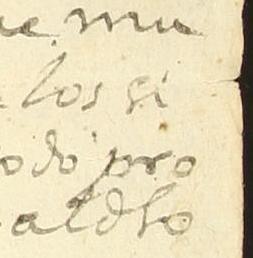 ue mu
los gi
odo pro
aldso